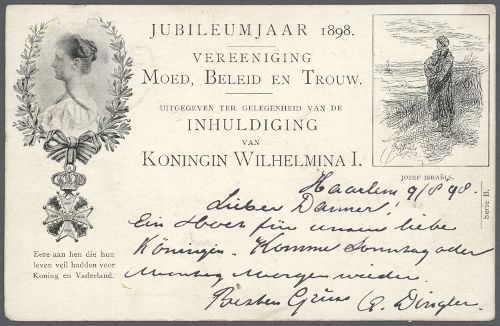 JUBILEUMJAAR 1898.
VEREENIGING
MOED, BELEID EN TROUW.
UITGEGEVEN TER GELEGENHEID VAN DE
INHULDIGING
VAN
KONINGIN WILHELMINA I.
JOZEF ISRAËLS.
Serie B.
Eere aan hen die hun
leven veil hadden voor
Koning en Vaderland.
Haarlem, 9/8 98.
Lieber Danner!
Ein Hoch für unsere liebe
Königin. Komme Sonntag oder
Montag Morgen wieder.
Besten Gruss E. Dingler.